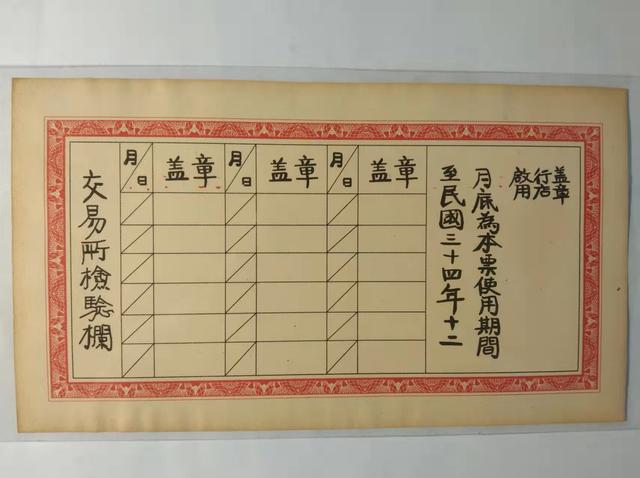 盖章
行后
啟用
月底為本票使用期間
至民國三十四年十二
盖章
月日
盖章
月日
盖章
月日
交易所檢驗欄